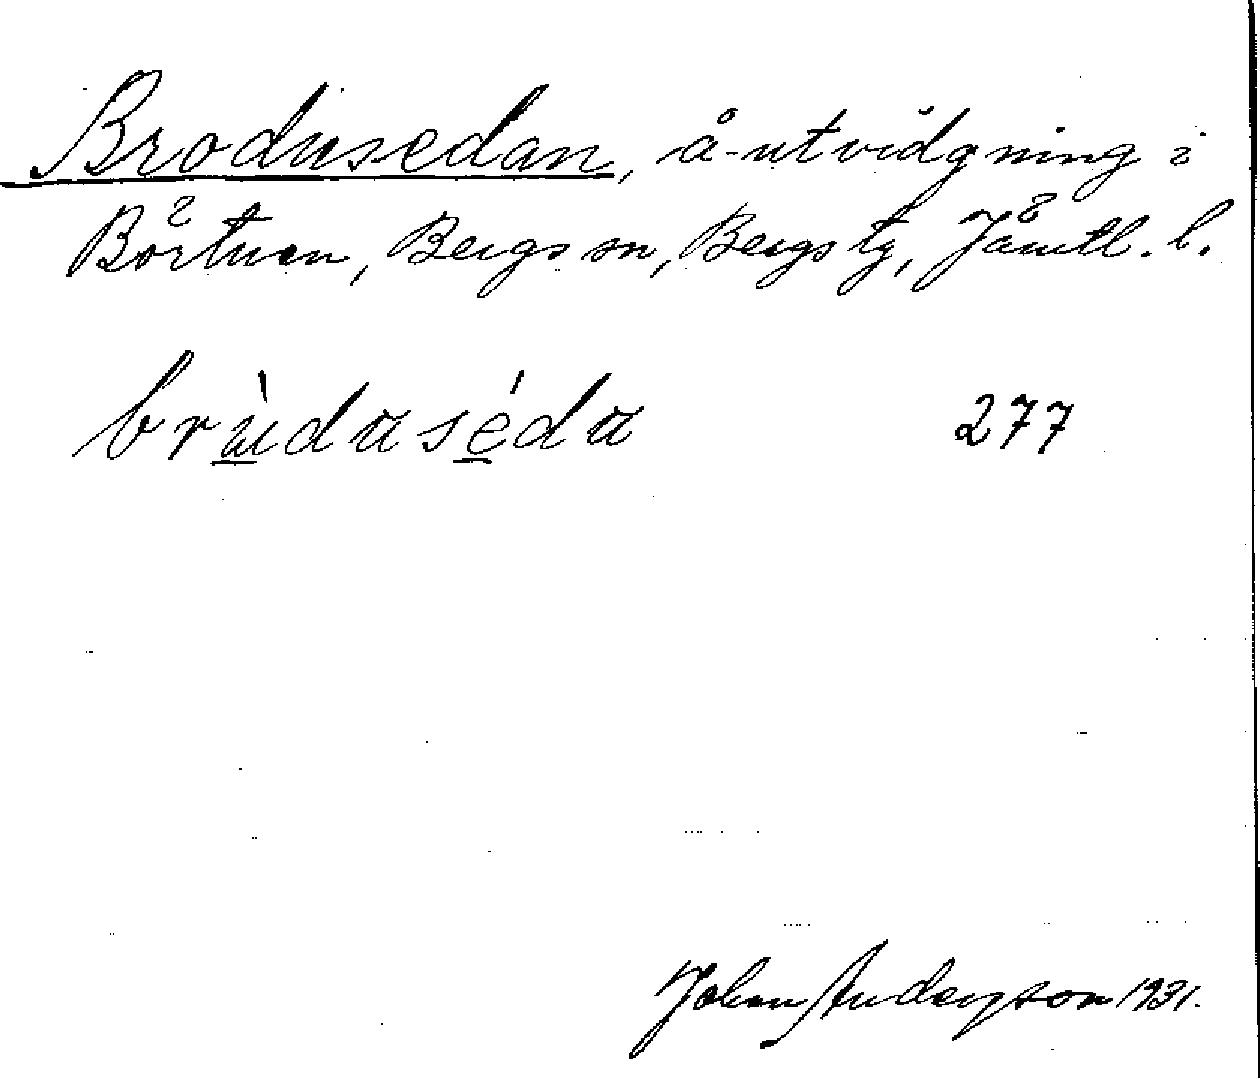 Brodusedan, å-utvidgning i
Börtnen, Bergs sn, Bergs tg, Jämtl. l.
brùdaséda 277
Johan Anderson 1931.